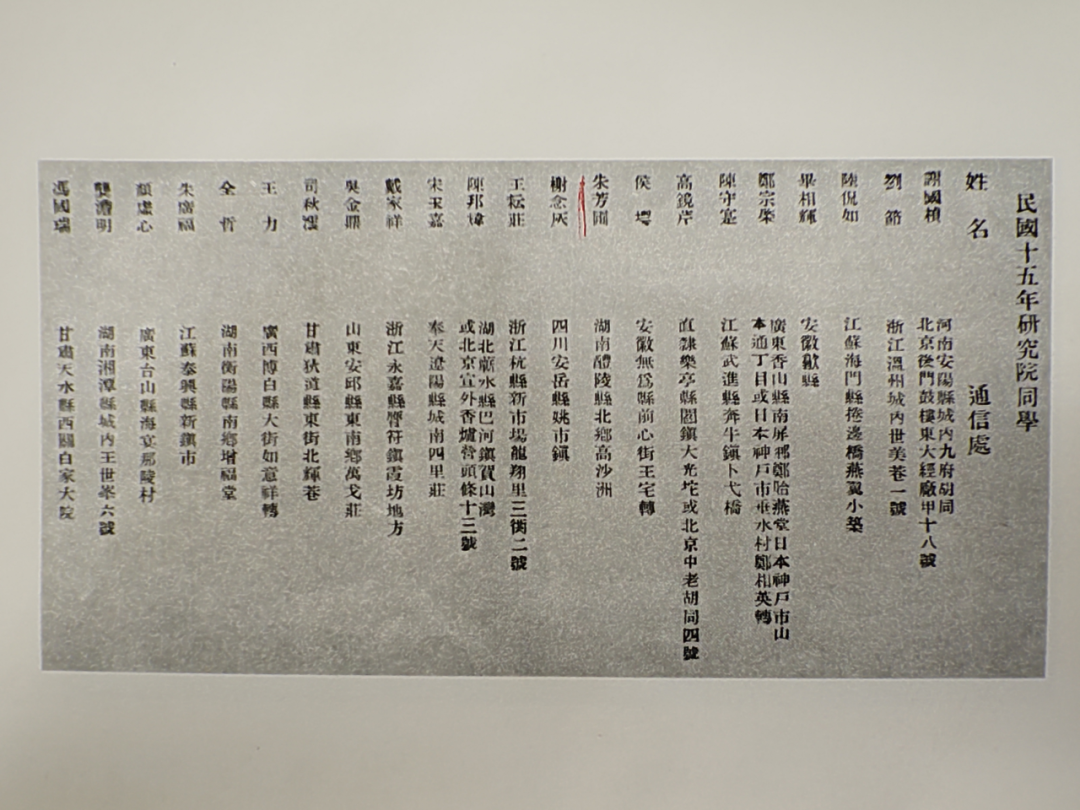 民國十五年研究院同學
姓名 通信處
謝國楨 河南安陽縣城內九府胡同
北京後門鼓樓東大經廠甲十八號
劉節 浙江溫州城內世美巷一號
陸侃如 江蘇海門縣搃邊橋燕翼小築
畢相輝 安徽歙縣
鄭宗棨 廣東香山縣南屏鄉鄭貽燕堂日本神戶市山
本通丁目或日本神戶市垂水村鄭相英轉
陳守寔 江蘇武進縣奔牛鎮卜弋橋
高鏡芹 直隸樂亭縣閻鎮大光坨或北京中老胡同四號
侯堮 安徽無爲縣前心街王宅轉
朱芳圃 湖南醴陵縣北鄉高沙洲
謝念灰 四川安岳縣姚市鎮
王耘莊 浙江杭縣新市場龍翔里三衖二號
陳邦煒 湖北蘄水縣巴河鎮賀山灣
或北京宣外香爐營頭條十三號
宋玉嘉 奉天遼陽縣城南四里莊
戴家祥 浙江永嘉縣膺符鎮霞坊地方
吳金鼎 山東安邱縣東南鄉萬戈莊
司秋澐 甘肅狄道縣東街北輝巷
王力 廣西博白縣大街如意祥轉
全哲 湖南衡陽縣南鄉增福堂
朱廣福 江蘇泰興縣新鎮市
顏虛心 廣東台山縣海宴那陵村
龔澹明 湖南湘潭縣城內王世峯六號
馮國瑞 甘肅天水縣西關白家大院